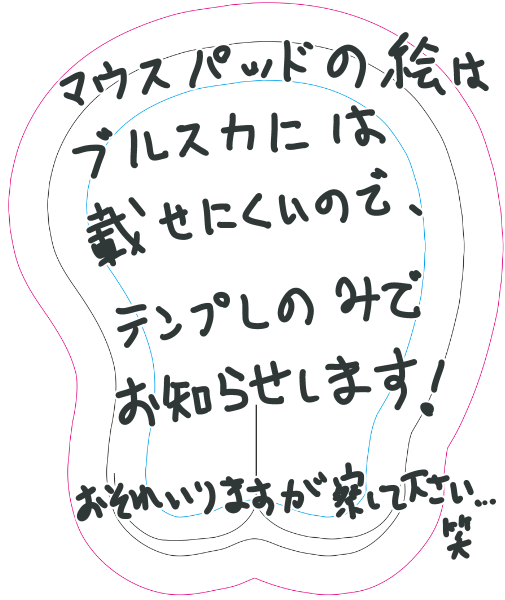 マウスパッドの絵は
ブルスカには
載せにくいので、
テンプレのみで
お知らせします!
おそれいりますが察して下さい...
笑